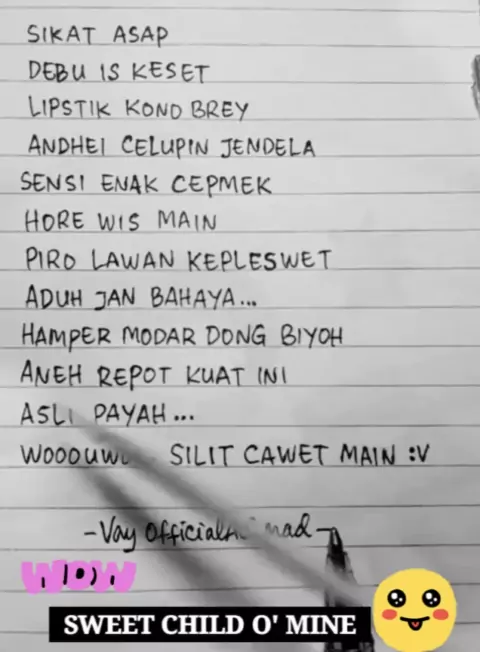 SIKAT ASAP
DEBU IS KESET
LIPSTIK KONO BREY
ANDHEI CELUPIN JENDELA
SENSI ENAK CEPMEK
HORE WIS MAIN
PIRO LAWAN KEPLESWET
ADUH JAN BAHAYA...
HAMPER MODAR DONG BIYOH
ANEH REPOT KUAT INI
ASLI PAYAH...
SILIT CAWET MAIN :V
-Vay Official
WOW
SWEET CHILD O' MINE